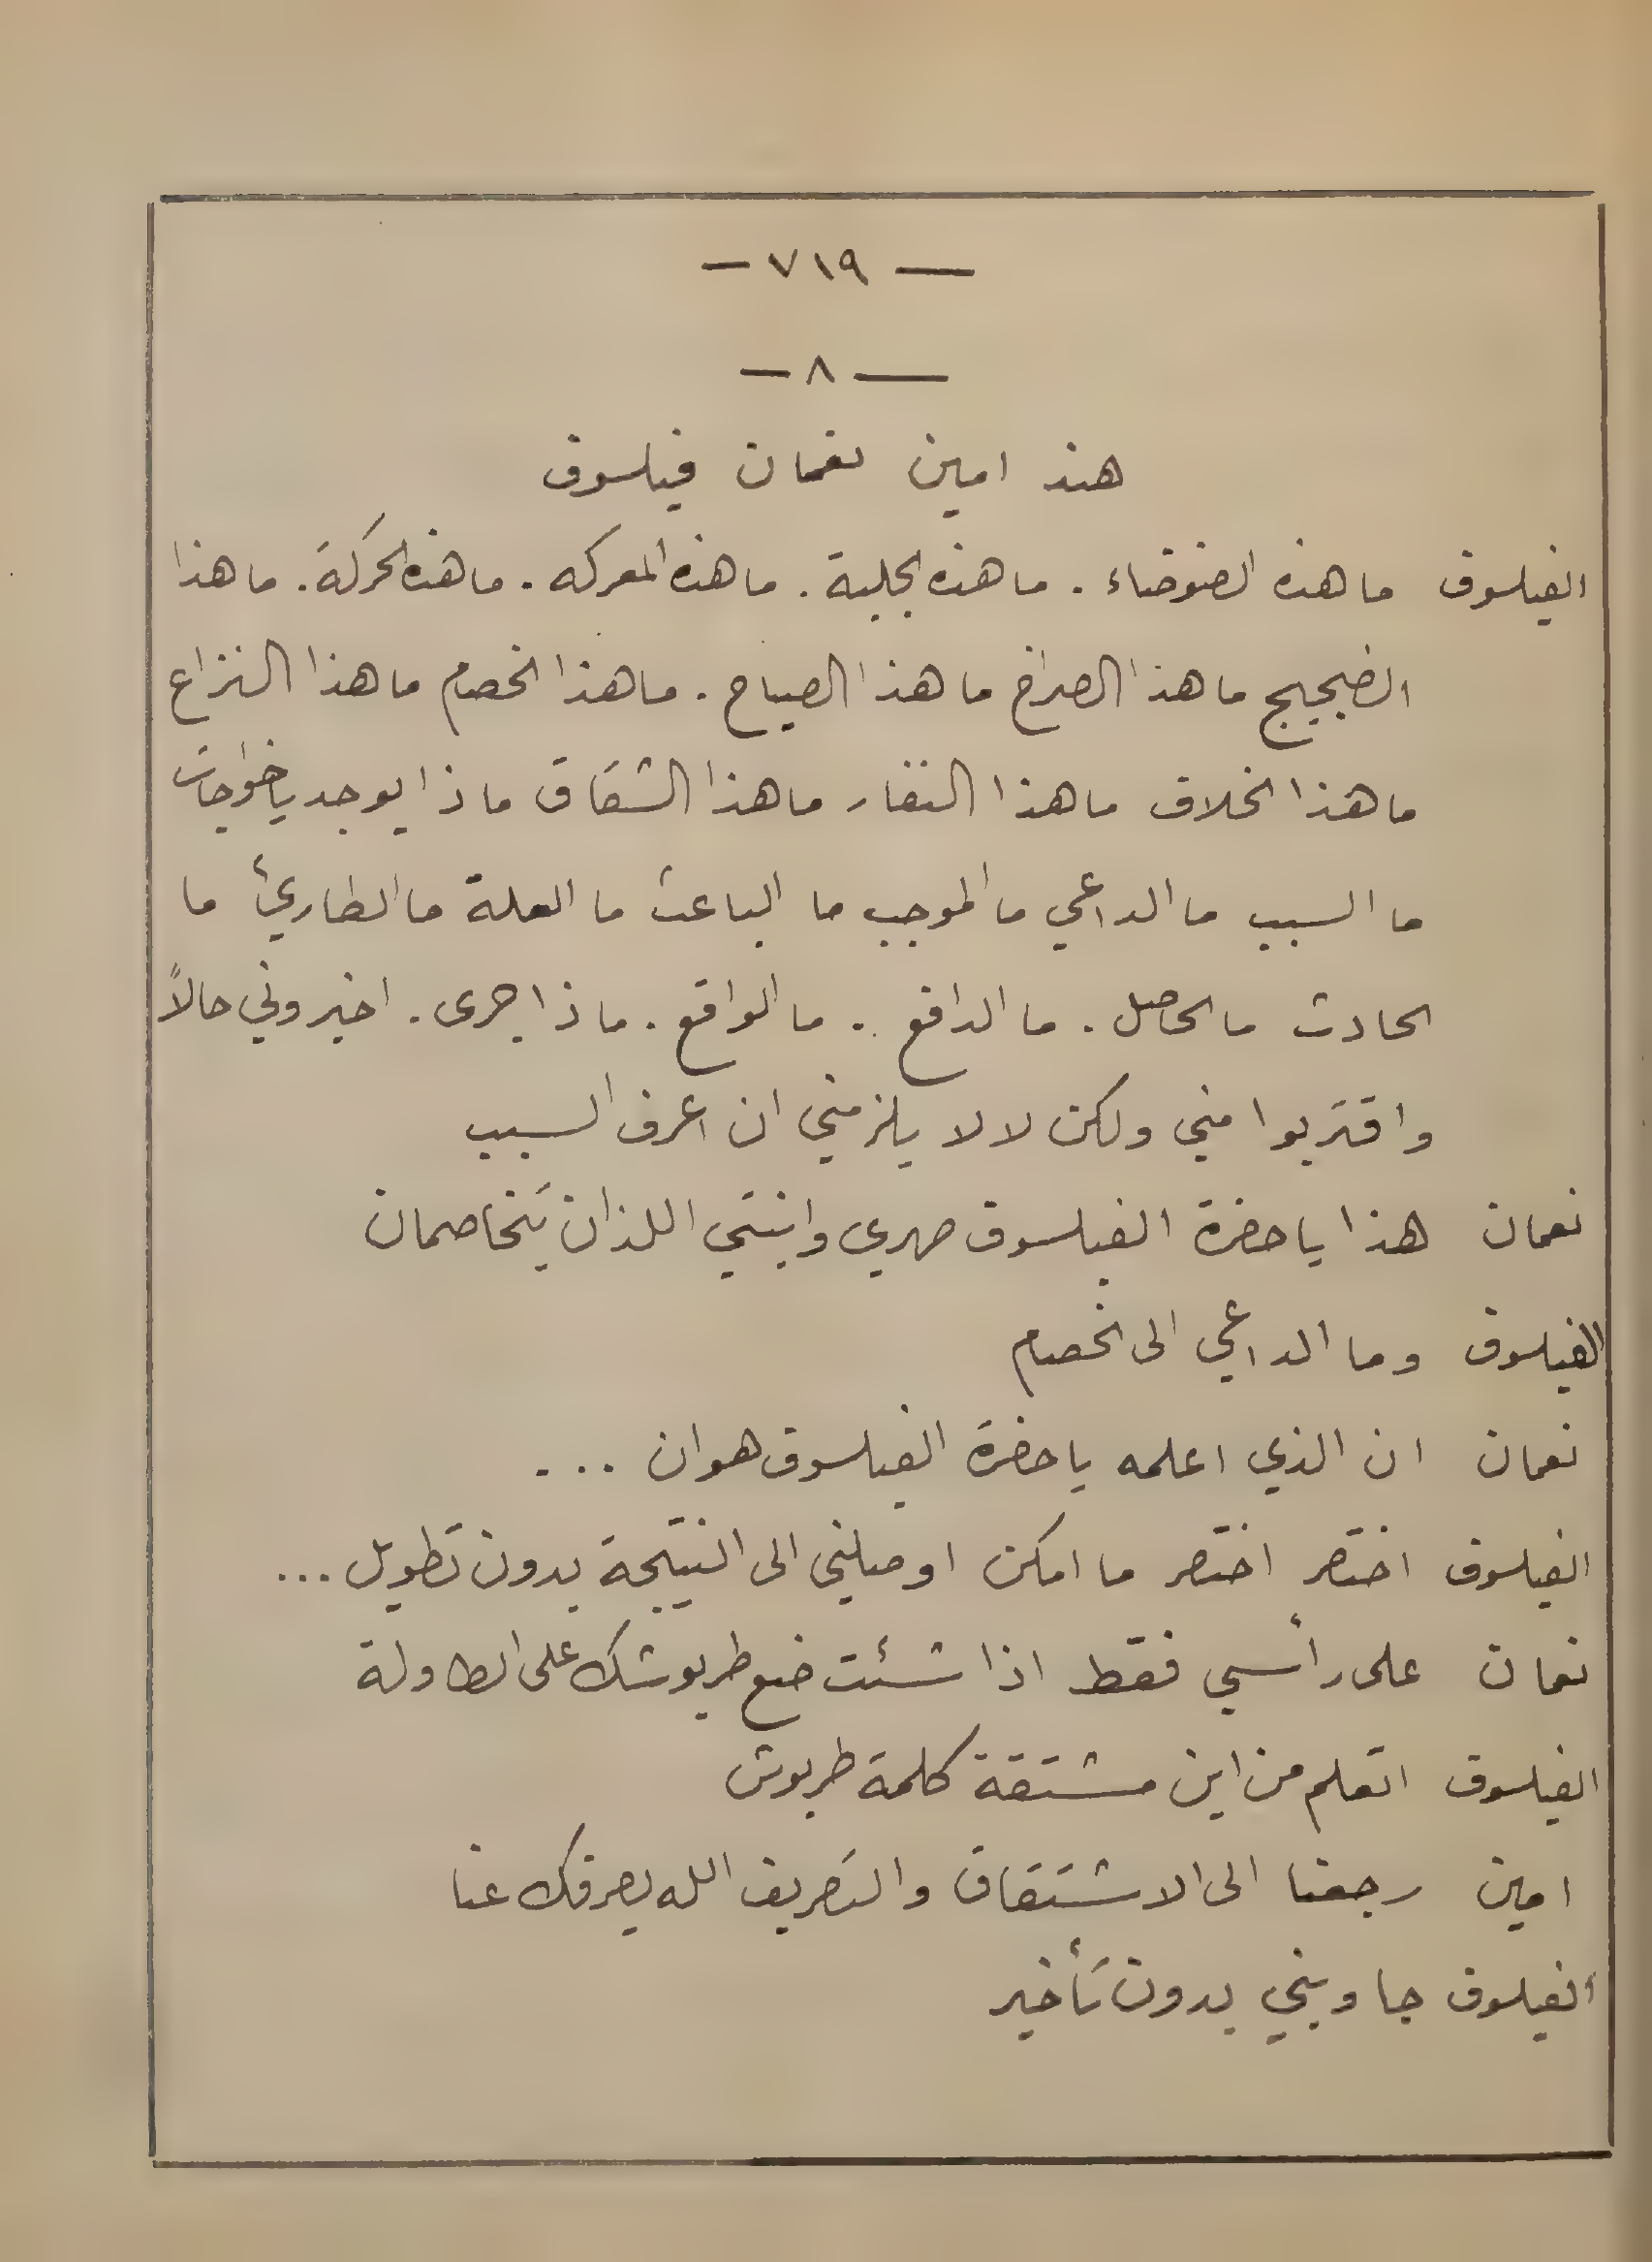 — ٧١٩ —
— ٨ —
هند امين نعمان فيلسوف
الفيلسوف ما هذه الضوضاء . ما هذه الجلبة . ما هذه المعركه . ما هذه الحركة . ما هذا
الضجيج ما هذا الصراخ ما هذا الصياح . ما هذا الخصام ما هذا النزاع
ما هذا الخلاف ما هذا النفار ما هذا الشقاق ما ذا يوجد يا خواجات
ما السبب ما الداعي ما الموجب ما الباعث ما العلة ما الطاريُ ما
الحادث ما الحاصل . ما الدافع . ما الواقع . ما ذا جرى . اخبروني حالاً
واقتربوا مني ولكن لا لا يلزمني ان اعرف السبب
نعمان هذا يا حضرة الفيلسوف صهري وابنتي اللذان يتخاصمان
الفيلسوف وما الداعي الى الخصام
نعمان ان الذي اعلمه يا حضرة الفيلسوف هو ان ...
الفيلسوف اختصر اختصر ما امكن اوصلني الى النتيجة بدون تطويل ...
نعمان على رأسي فقط اذا شئت ضع طربوشك على الطاولة
الفيلسوف اتعلم من اين مشتقة كلمة طربوش
امين رجعنا الى الاشتقاق والتصريف الله يصرفك عنا
الفيلسوف جاوبني بدون تأخير